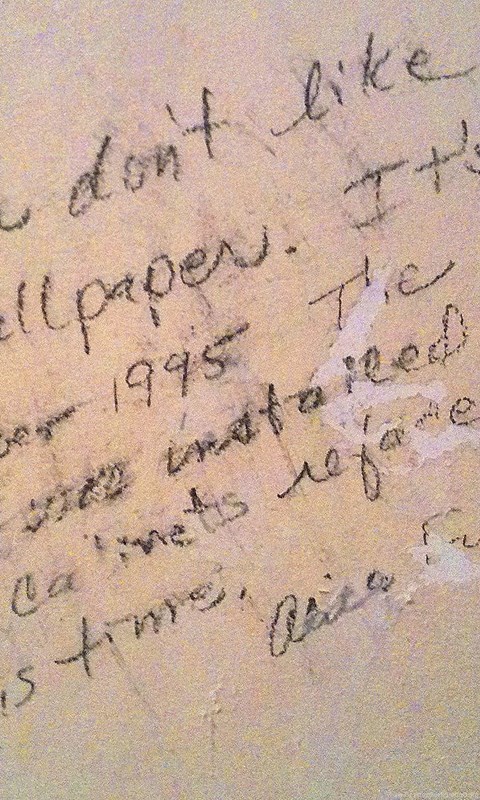 don't like
allpaper. It's
ber 1995 The
was installed
Cabinets reface
is time.